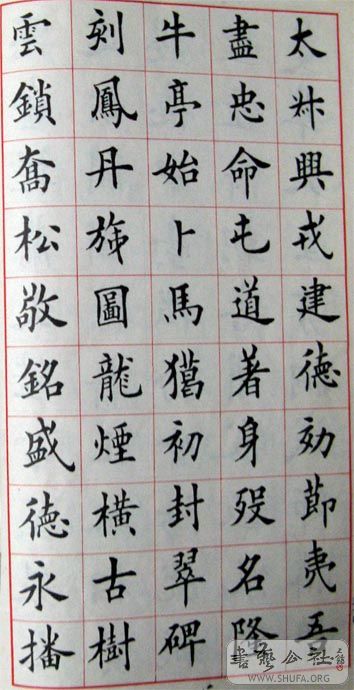 太興戎建徳効節夷五
盡忠命屯道著身歿名隆
牛亭始卜馬獦初封翠碑
刻鳳丹旐圖龍煙橫古樹
雲鎖喬松敬銘盛徳永播
書藝公社
WWW.SHUFA.ORG